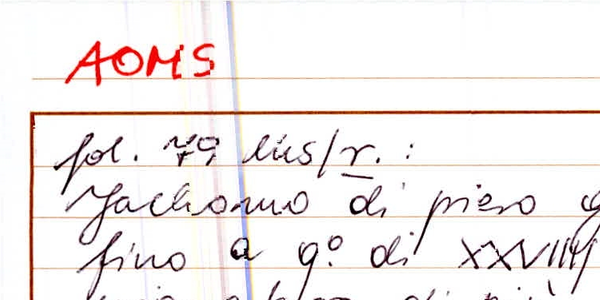 AOMS
fol. 79 bis/r. :
Jachomo di piero
fino a g° di XXVIIII
di